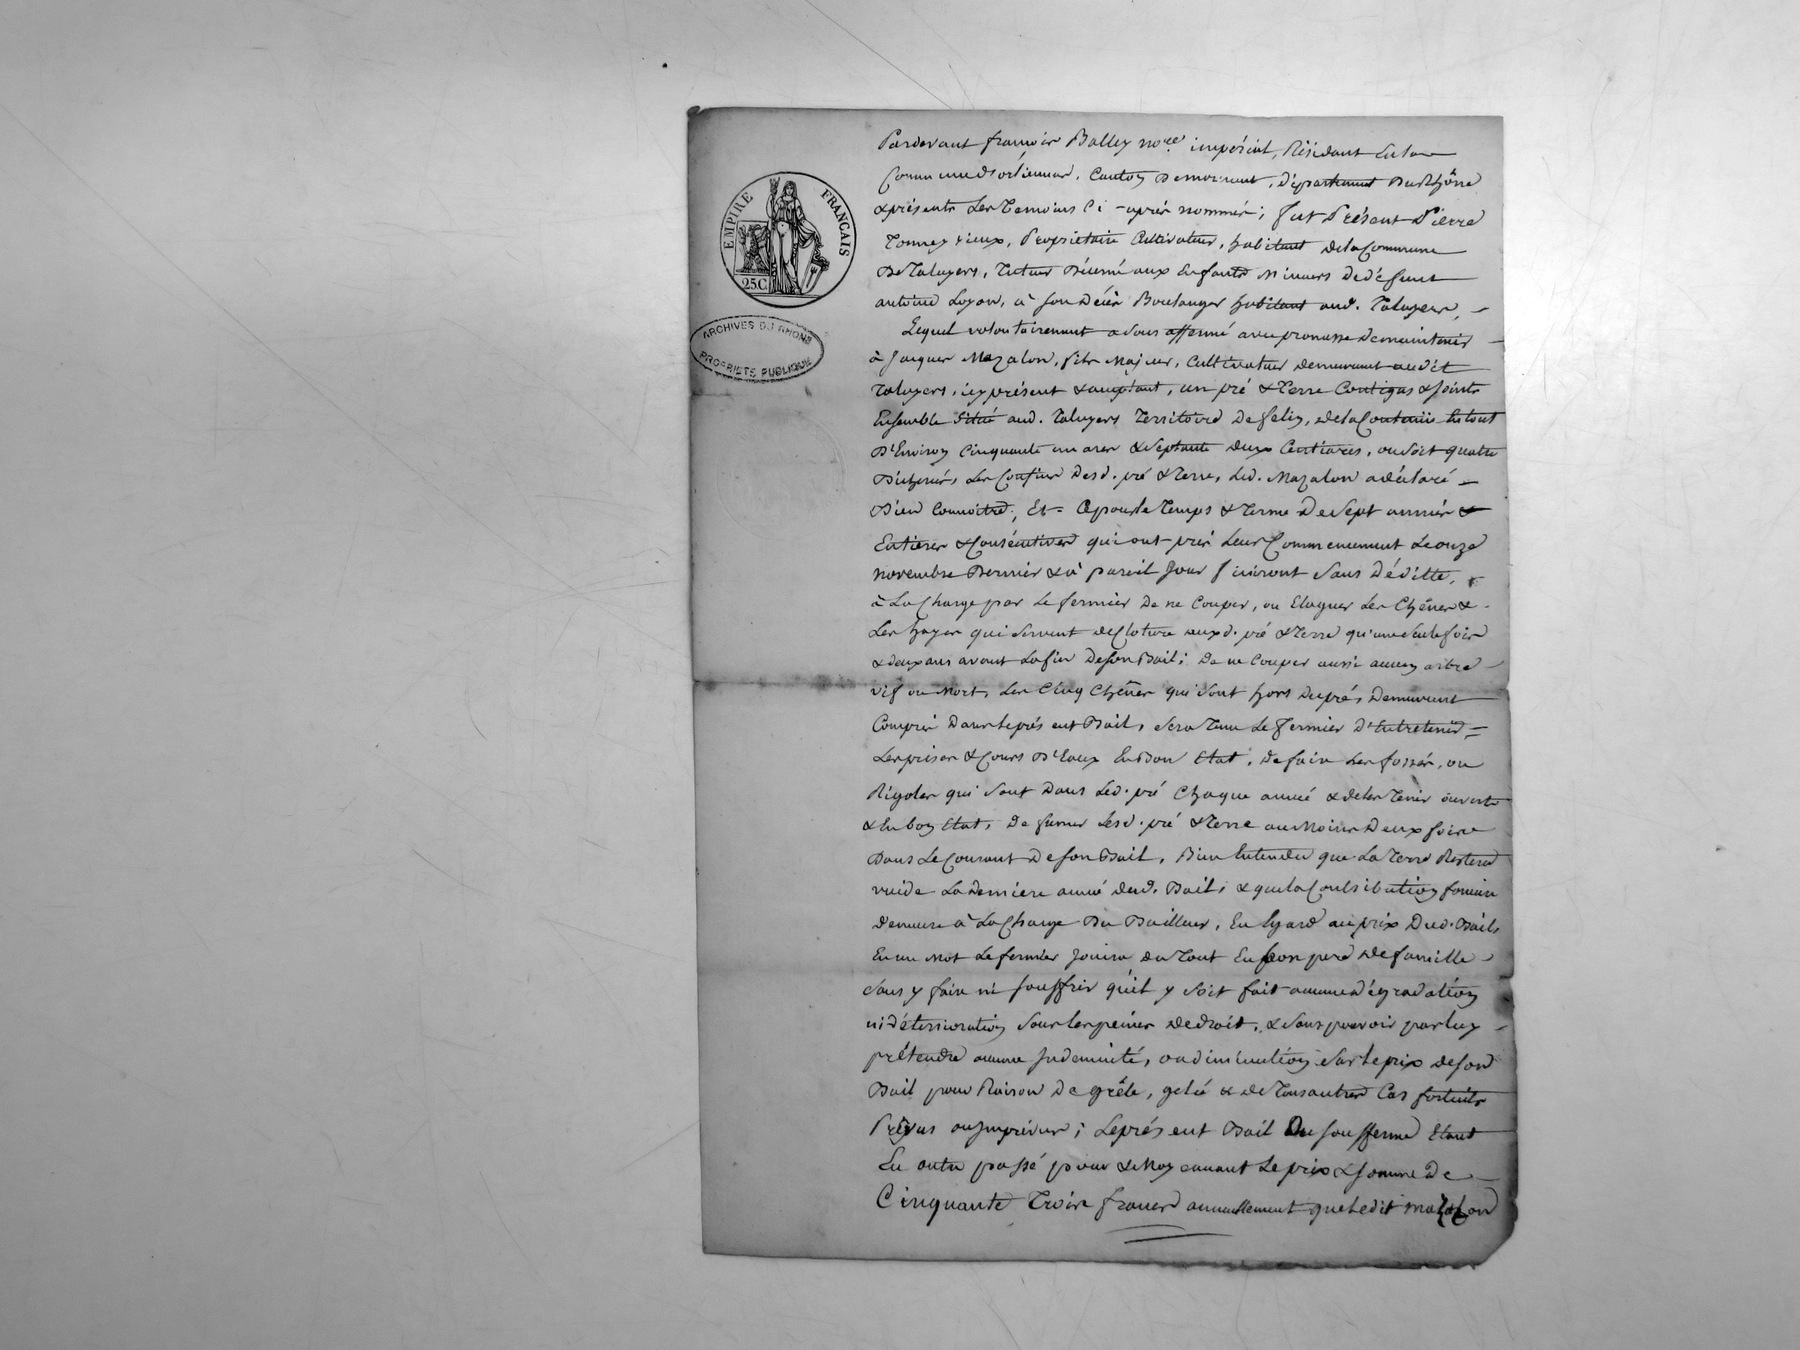 EMPIRE FRANÇAIS
25C.
ARCHIVES DU RHONE
PROPRIETE PUBLIQUE
Pardevant françois Balley no.re impérial, Résidant En la
Commune d'orliennas, Canton De mornant, département Du Rhône
& présents Les Temoins Ci-après nommés; fut Présent Pierre
propriétaire Cultivateur, habitant de la Commune
De Taluyers, Tuteur Décerné aux Enfants Mineurs De défunt
antoine Loyon, à son décès Boulanger habitant aud. Taluyers,
Lequel volontairement a sous affermé avec promesse de maintenir
à Jacques Mazalon, fils Majeur, Cultivateur demeurant audit
Taluyers, icy présent & acceptant, un pré & Terre Contigus & joints
Ensemble Situé aud. Taluyers Territoire De felin, de la Contenüe En tout
D'Environ Cinquante un ares & Septante deux Centiares, ou Soit quatre
Bicherés, Les Confins Desd. pré & Terre, Led. Mazalon a déclaré
Bien Connoitre; Et Ce pour le Temps & Terme De Sept années
Entieres & Consécutives qui ont pris Leur Commencement Le onze
novembre Dernier & à pareil Jour finiront Sans Déditte,
à La Charge par Le fermier De ne Couper, ou Elaguer Les Chênes &
Les hayes qui Servent de Cloture auxd. pré & Terre qu'une Seule fois
& deux ans avant La fin De son Bail; De ne Couper aussi aucun arbre
vif ou Mort, Les Cinq Chênes qui Sont hors du pré, Demeurent
Compris Dans le présent Bail, Sera Tenu Le fermier D'Entretenir
Les prises & Cours D'Eaux En Bon Etat, de faire Les fossés, ou
Rigoles qui Sont Dans Led. pré Chaque année & de les Tenir ouverts
& En bon Etat, De fumer Lesd. pré & Terre au Moins Deux fois
Dans Le Courant De son Bail, Bien Entendu que La Terre Restera
vuide La Derniere année dud. Bail; & que la Contribution fonciere
demeure à La Charge Du Bailleur, En Egard au prix Dud. Bail,
En un Mot Le fermier Jouira du Tout En bon pere de famille
Sans y faire ni souffrir qu'il y Soit fait aucune dégradation
ni déterrioration Sous les peines de droit, & Sans pouvoir par luy
prétendre aucune Indemnité, ou diminution Sur le prix de son
Bail pour Raison De grêle, gelée & de Tous autres Cas fortuits
Prévus ou Imprévus; Le présent Bail En sous ferme Etant
En outre passé pour & Moyennant Le prix & somme De
Cinquante Trois francs annuellement que Ledit Mazalon